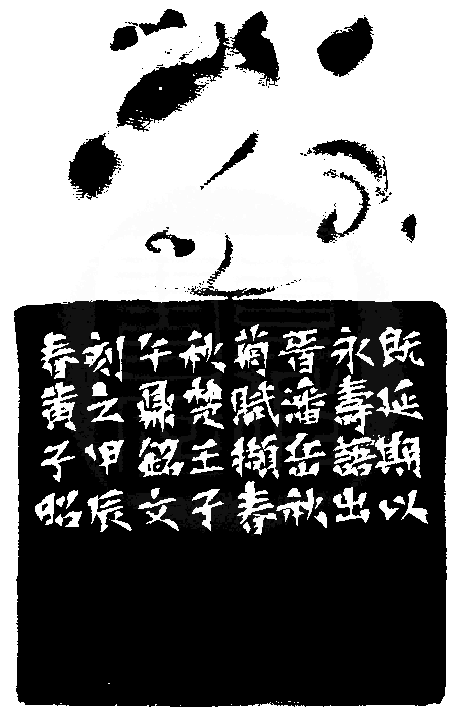 既延期以
永壽語出
晉潘岳秋
菊賦擷春
秋楚王子
午鼎銘文
刻之甲辰
春黄子昭